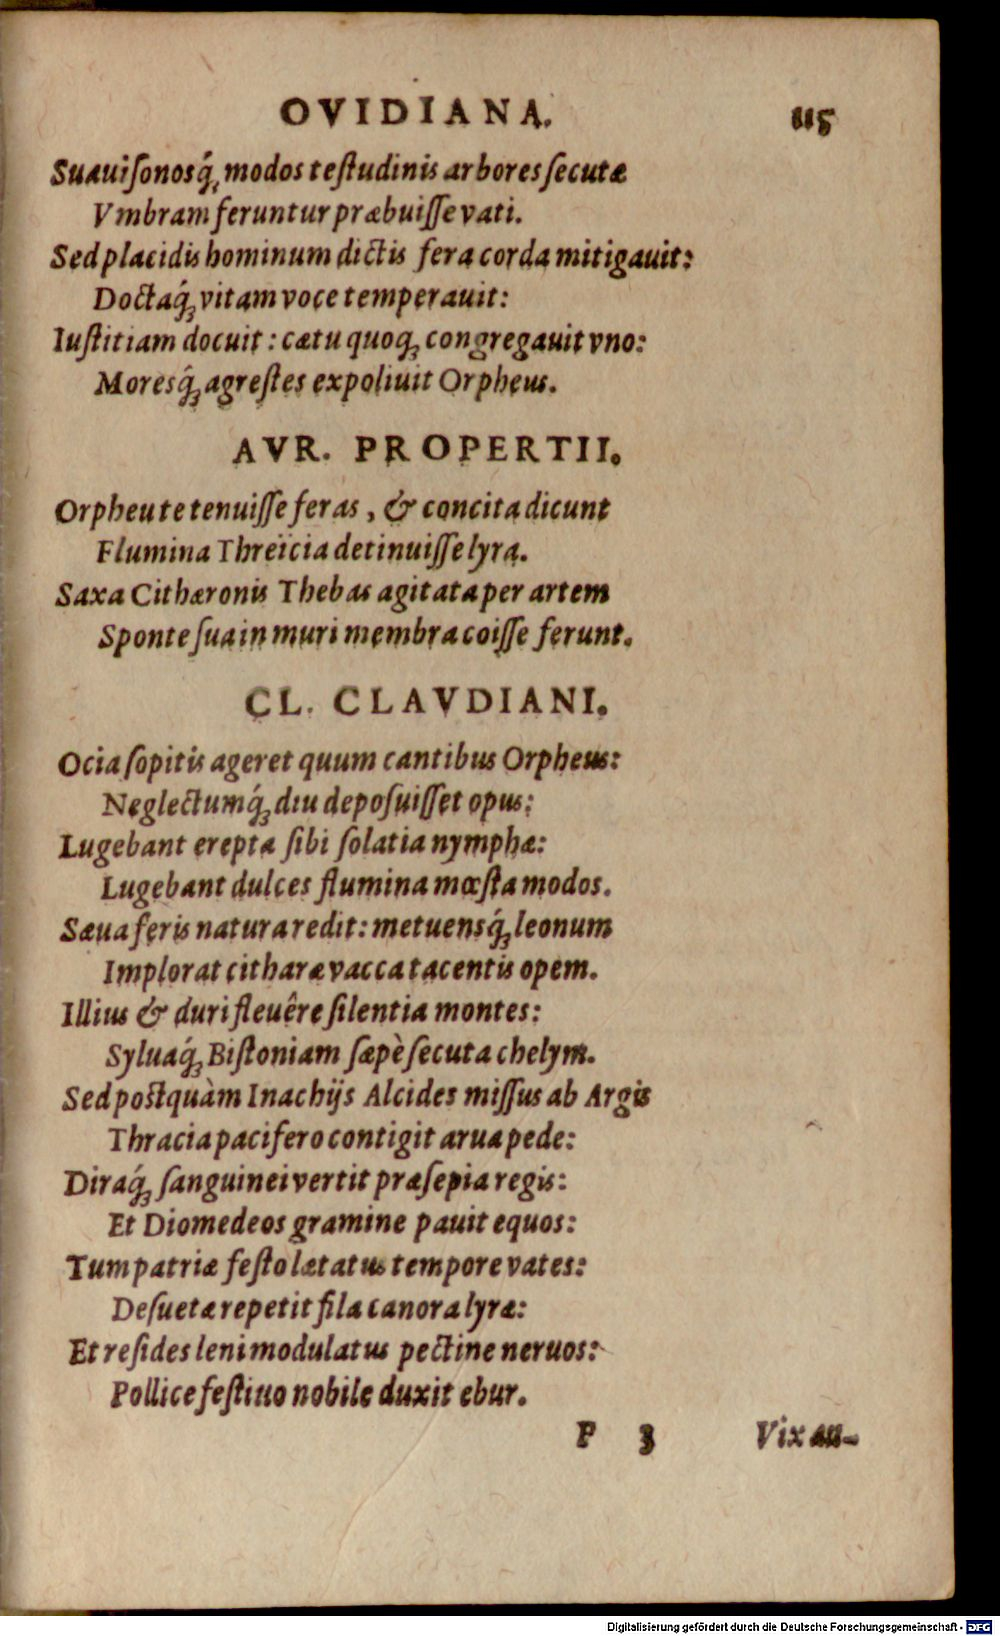 OVIDIANA. 115
Suauiſonosq́; modos teſtudinis arbores ſecutæ
Vmbram feruntur præbuiſſe vati.
Sed placidis hominum dictis fera corda mitigauit:
Doctaq́; vitam voce temperauit:
Iuſtitiam docuit: cætu quoq; congregauit vno:
Moresq́; agreſtes expoliuit Orpheus.
AVR. PROPERTII.
Orpheu te tenuiſſe feras, & concita dicunt
Flumina Threicia detinuiſſe lyra.
Saxa Cithæronis Thebas agitata per artem
Sponte ſua in muri membra coiſſe ferunt.
CL. CLAVDIANI.
Ocia ſopitis ageret quum cantibus Orpheus:
Neglectumq́; diu depoſuiſſet opus:
Lugebant erepta ſibi ſolatia nymphæ:
Lugebant dulces flumina mœſta modos.
Sæua feris natura redit: metuensq́; leonum
Implorat citharæ vacca tacentis opem.
Illius & duri fleuêre ſilentia montes:
Syluaq́; Biſtoniam ſæpè ſecuta chelym.
Sed postquàm Inachijs Alcides miſſus ab Argis
Thracia pacifero contigit arua pede:
Diraq́; ſanguinei vertit præſepia regis:
Et Diomedeos gramine pauit equos:
Tum patriæ feſto lætatus tempore vates:
Deſuetæ repetit fila canora lyræ:
Et reſides leni modulatus pectine neruos:
Pollice feſtiuo nobile duxit ebur.
P 3 Vix au-
Digitalisierung gefördert durch die Deutsche Forschungsgemeinschaft - DFG